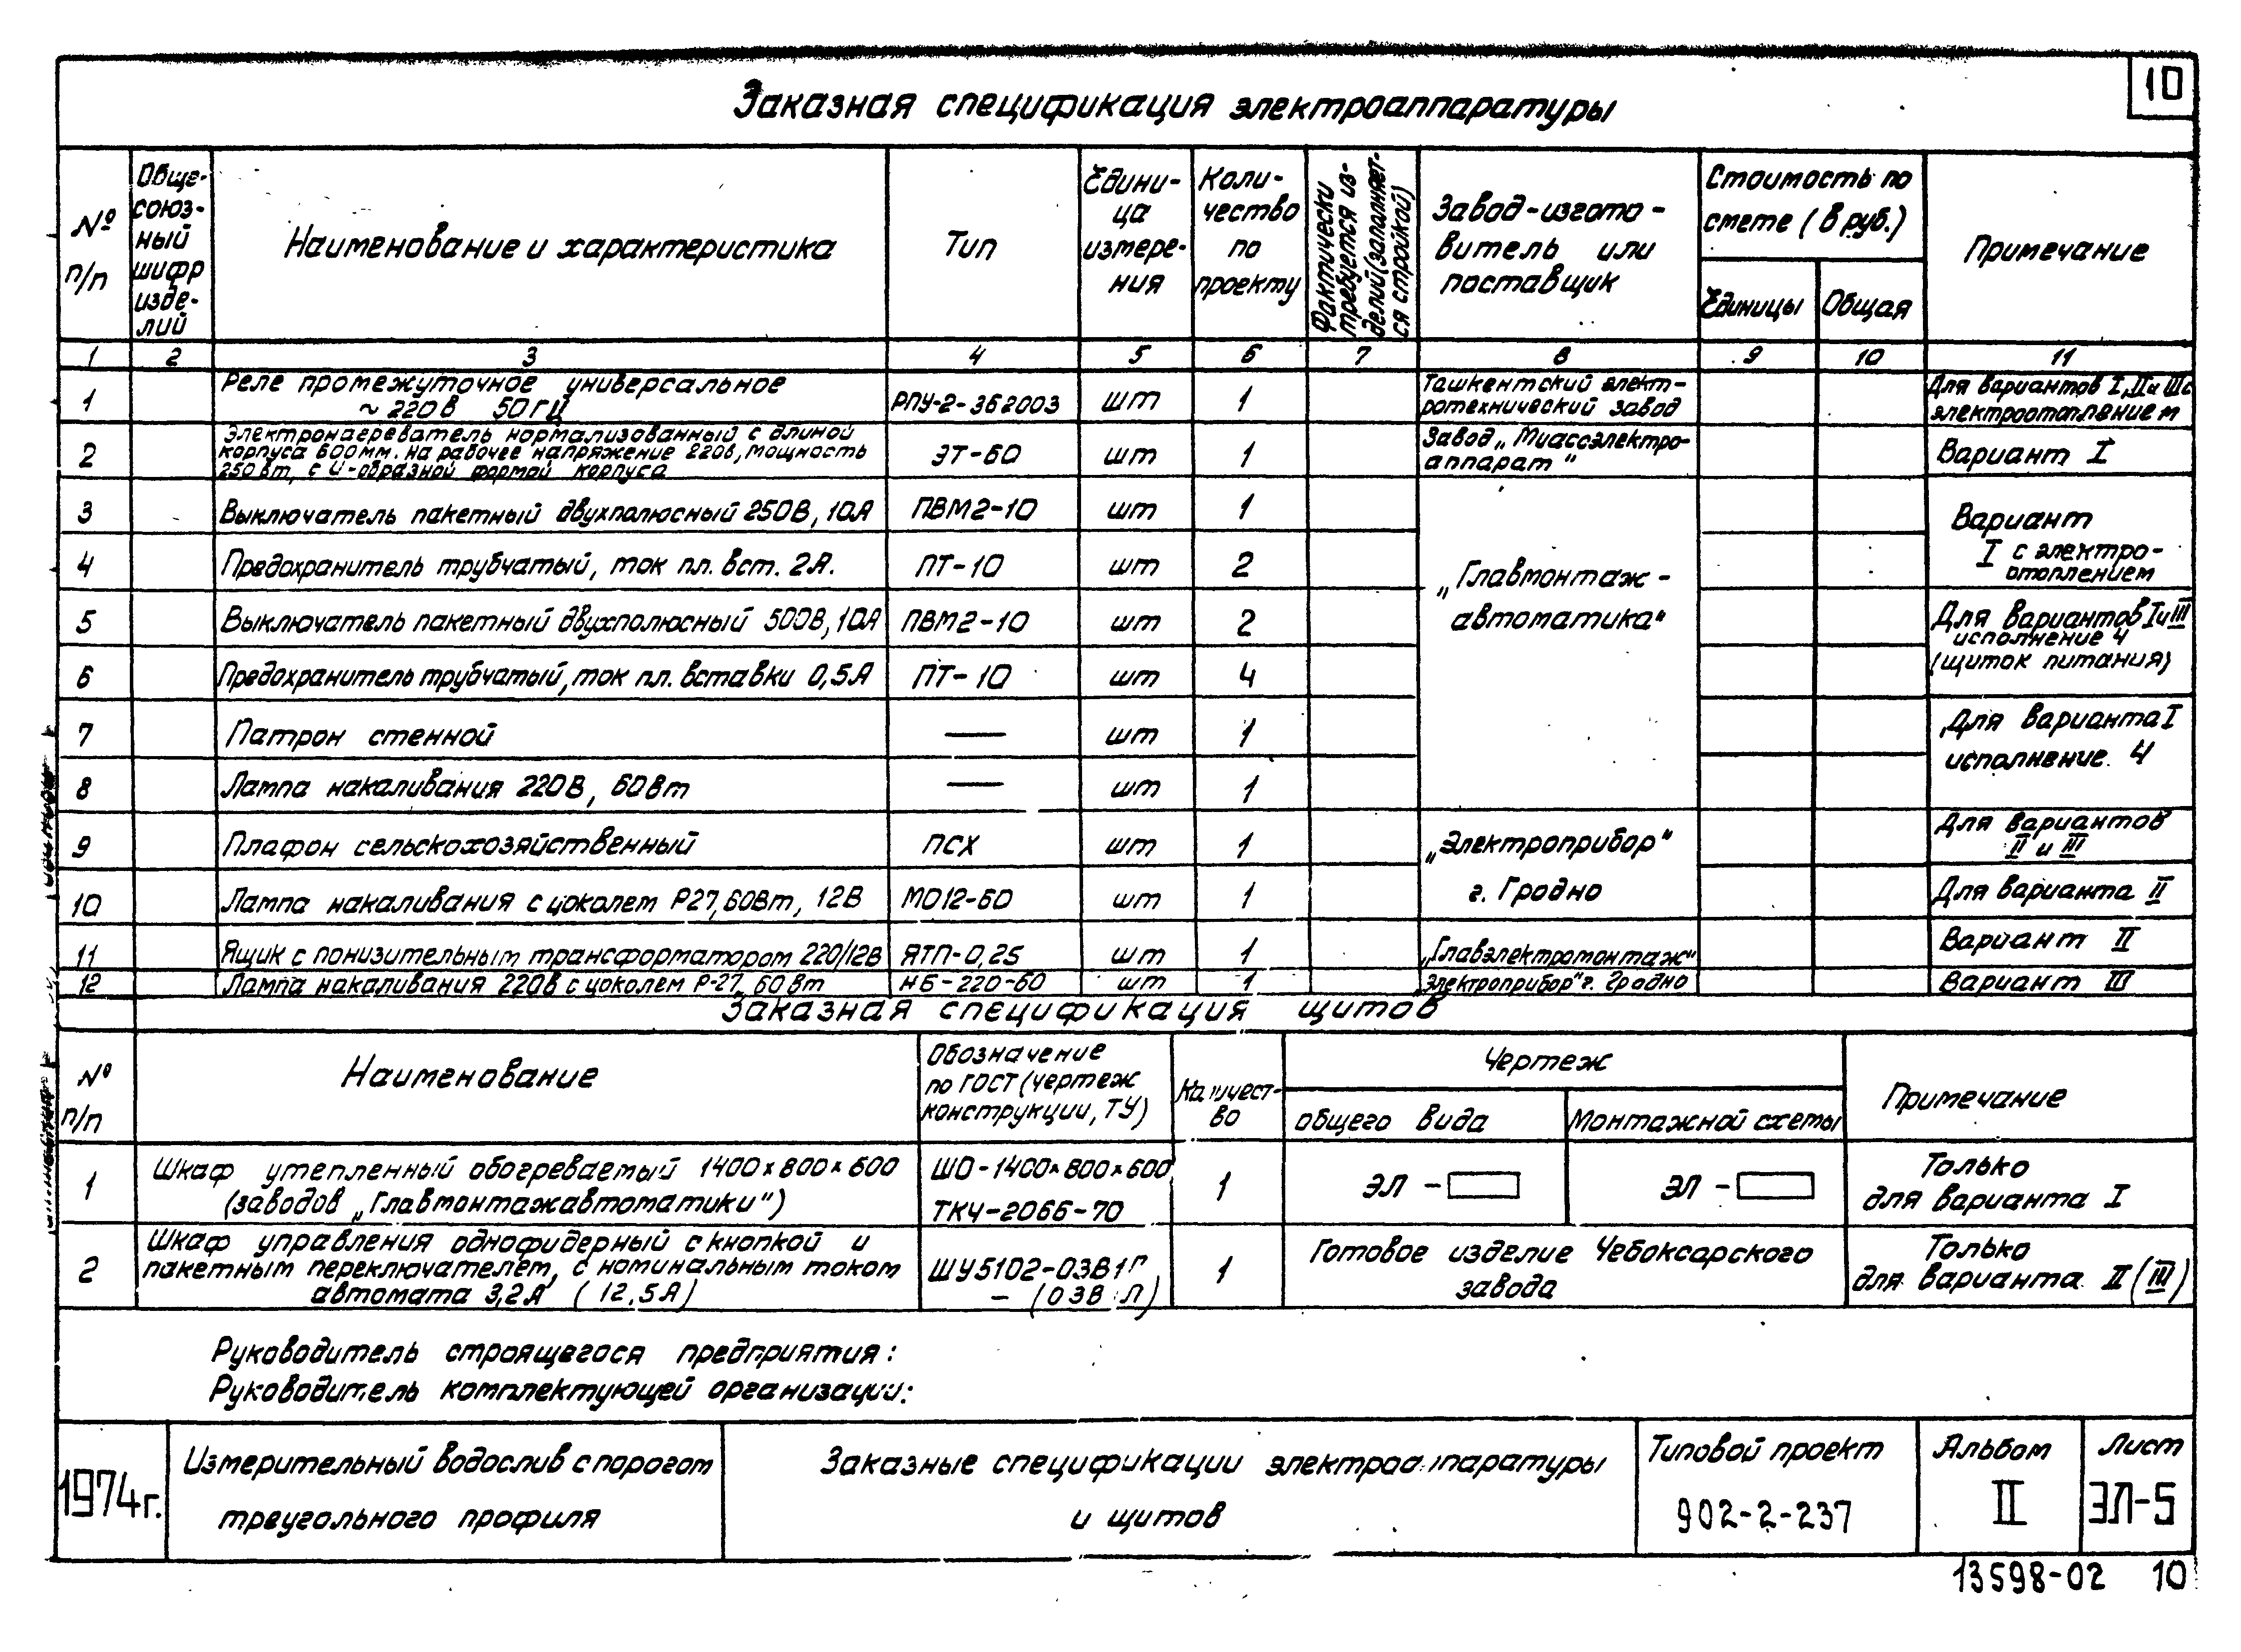 10
Заказная спецификация электроаппаратуры
№ п/п
Обще-
союз-
ный
шифр
изде-
лий
Наименование и характеристика
Тип
Едини-
ца
измере-
ния
Коли-
чество
по
проекту
Фактически
требуется из-
делий (заполняет-
ся стройкой)
Завод-изгото-
витель или
поставщик
Стоимость по
смете (в руб.)
Единицы
Общая
Примечание
1 2 3 4 5 6 7 8 9 10 11
1 Реле промежуточное универсальное
~ 220в 50гц РПУ-2-362003 шт 1
Ташкентский элект-
ротехнический завод
Для вариантов I, II и III с
электроотоплением
2 Электронагреватель нормализованный с длиной
корпуса 600мм. на рабочее напряжение 220в, мощность
250вт, с U-образной формой корпуса
ЭТ-60 шт 1
Завод „Миассэлектро-
аппарат"
Вариант I
3 Выключатель пакетный двухполюсный 250В, 10А ПВМ2-10 шт 1
4 Предохранитель трубчатый, ток пл. вст. 2А. ПТ-10 шт 2
Вариант
I с электро-
отоплением
5 Выключатель пакетный двухполюсный 500В, 10А ПВМ2-10 шт 2
6 Предохранитель трубчатый, ток пл. вставки 0,5А ПТ-10 шт 4
„Главмонтаж-
автоматика"
Для вариантов I и III
исполнение Ч
(щиток питания)
7 Патрон стенной — шт 1
8 Лампа накаливания 220В, 60Вт — шт 1
Для варианта I
исполнение Ч
9 Плафон сельскохозяйственный ПСХ шт 1
„Электроприбор"
г. Гродно
Для вариантов
II и III
10 Лампа накаливания с цоколем Р27, 60Вт, 12В МО12-60 шт 1 Для варианта II
11 Ящик с понизительным трансформатором 220/12В ЯТП-0,25 шт 1 „Главэлектромонтаж" Вариант II
12 Лампа накаливания 220в с цоколем Р-27, 60вт НБ-220-60 шт 1 „Электроприбор" г. Гродно Вариант III
Заказная спецификация щитов
№ п/п
Наименование
Обозначение
по ГОСТ (чертеж
конструкции, ТУ)
Количест-
во
Чертеж
общего вида
Монтажной схемы
Примечание
1 Шкаф утепленный обогреваемый 1400×800×600
(заводов „Главмонтажавтоматики")
ШО-1400×800×600
ТКЧ-2066-70
1
ЭЛ -
ЭЛ -
Только
для варианта I
2 Шкаф управления однофидерный с кнопкой и
пакетным переключателем, с номинальным током
автомата 3,2А (12,5А)
ШУ5102-03В1Г
- (03В Л)
1
Готовое изделие Чебоксарского
завода
Только
для варианта II (III)
Руководитель строящегося предприятия:
Руководитель комплектующей организации:
1974г.
Измерительный водослив с порогом
треугольного профиля
Заказные спецификации электроаппаратуры
и щитов
Типовой проект
902-2-237
Альбом
II
Лист
ЭЛ-5
13598-02 10